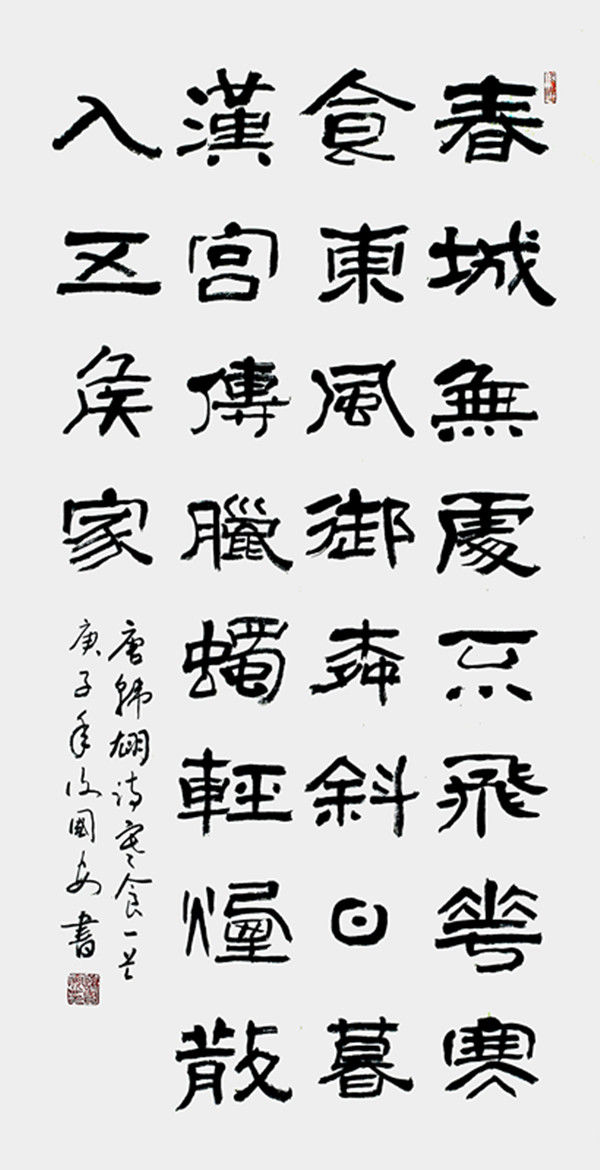 春城無處不飛花寒
食東風御柳斜日暮
漢宮傳臘蠋輕煙散
入五侯家
唐韓翃詩寒食一首
庚子年國安書